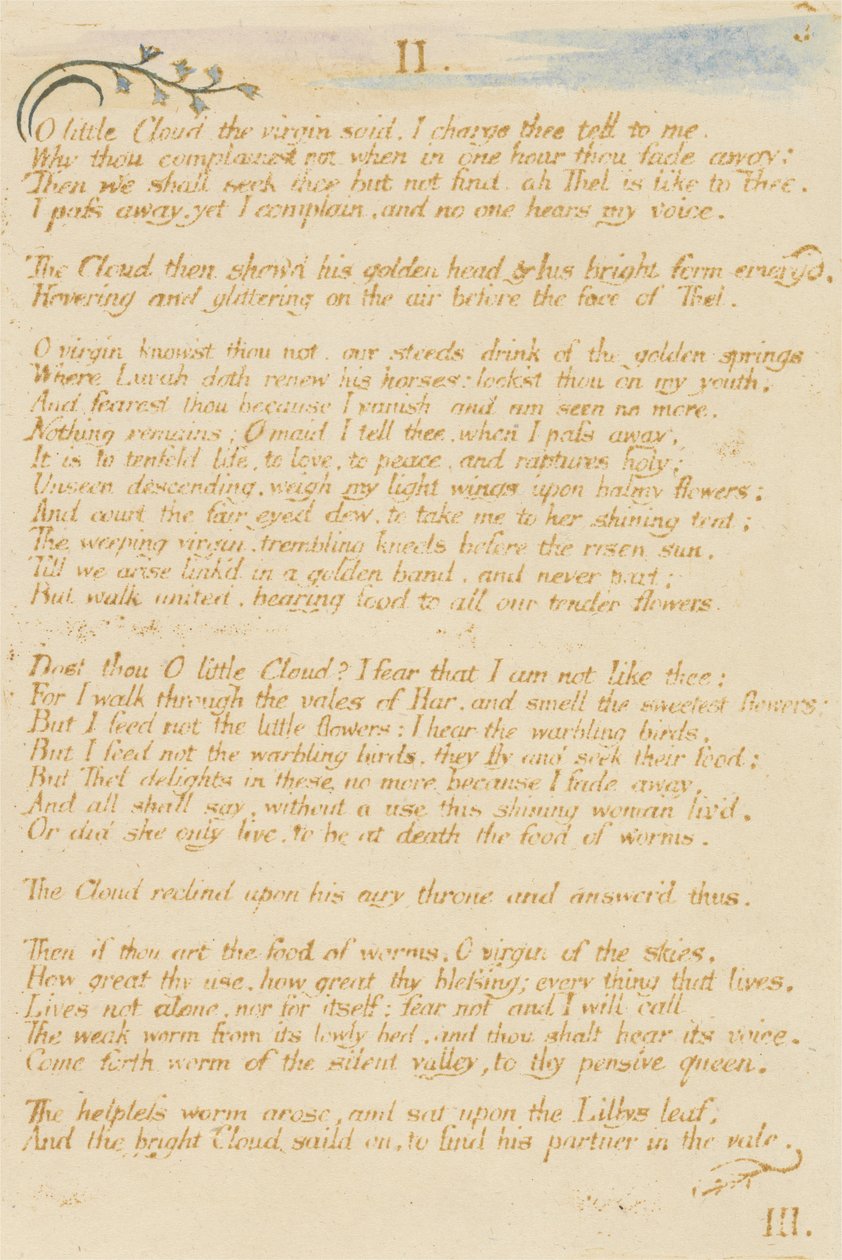 3
II.
O little Cloud the virgin said, I charge thee tell to me,
Why thou complainest not when in one hour thou fade away:
Then we shall seek thee but not find, ah Thel is like to Thee.
I pass away, yet I complain, and no one hears my voice.
The Cloud then shew'd his golden head & his bright form emerg'd,
Hovering and glittering on the air before the face of Thel.
O virgin know'st thou not. our steeds drink of the golden springs
Where Luvah doth renew his horses: look'st thou on my youth,
And fearest thou because I vanish and am seen no more.
Nothing remains; O maid I tell thee, when I pass away,
It is to tenfold life, to love, to peace, and raptures holy:
Unseen descending, weigh my light wings upon balmy flowers;
And court the fair eyed dew, to take me to her shining tent;
The weeping virgin, trembling kneels before the risen sun,
Till we arise link'd in a golden band, and never part;
But walk united, bearing food to all our tender flowers
Dost thou O little Cloud? I fear that I am not like thee;
For I walk through the vales of Har, and smell the sweetest flowers;
But I feed not the little flowers: I hear the warbling birds,
But I feed not the warbling birds, they fly and seek their food;
But Thel delights in these no more because I fade away,
And all shall say, without a use this shining woman liv'd,
Or did she only live, to be at death the food of worms.
The Cloud reclind upon his airy throne and answer'd thus.
Then if thou art the food of worms, O virgin of the skies,
How great thy use, how great thy blessing; every thing that lives,
Lives not alone, nor for itself: fear not and I will call
The weak worm from its lowly bed, and thou shalt hear its voice.
Come forth worm of the silent valley, to thy pensive queen.
The helpless worm arose, and sat upon the Lillys leaf,
And the bright Cloud saild on, to find his partner in the vale.
III.